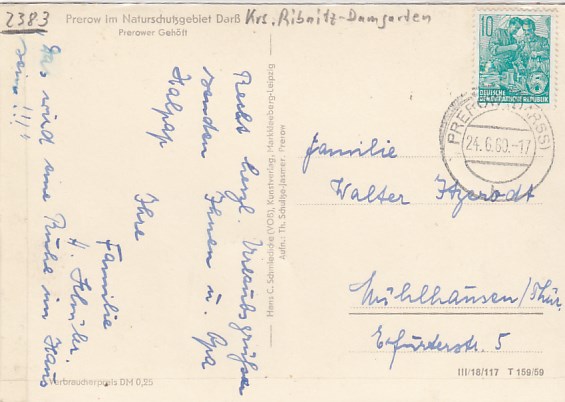 2383
Prerow im Naturschutzgebiet Darß
Krs. Ribnitz-Damgarten
Prerower Gehöft
Recht herzl. Urlaubsgrüße
senden Ihnen u. Opa
Ihre
Familie
H.
Das wird eine Ruhe im Haus
sein !!!
Verbraucherpreis DM 0,25
Hans C. Schmiedicke (VOB), Kunstverlag, Markkleeberg-Leipzig
Aufn.: Th. Schultze-Jasmer, Prerow
10
5
DEUTSCHE
DEMOKRATISCHE REPUBLIK
PREROW (DARSS)
24.6.60.-17
Familie
Walter
Mühlhausen/Thür.
Erfurterstr. 5
III/18/117 T 159/59